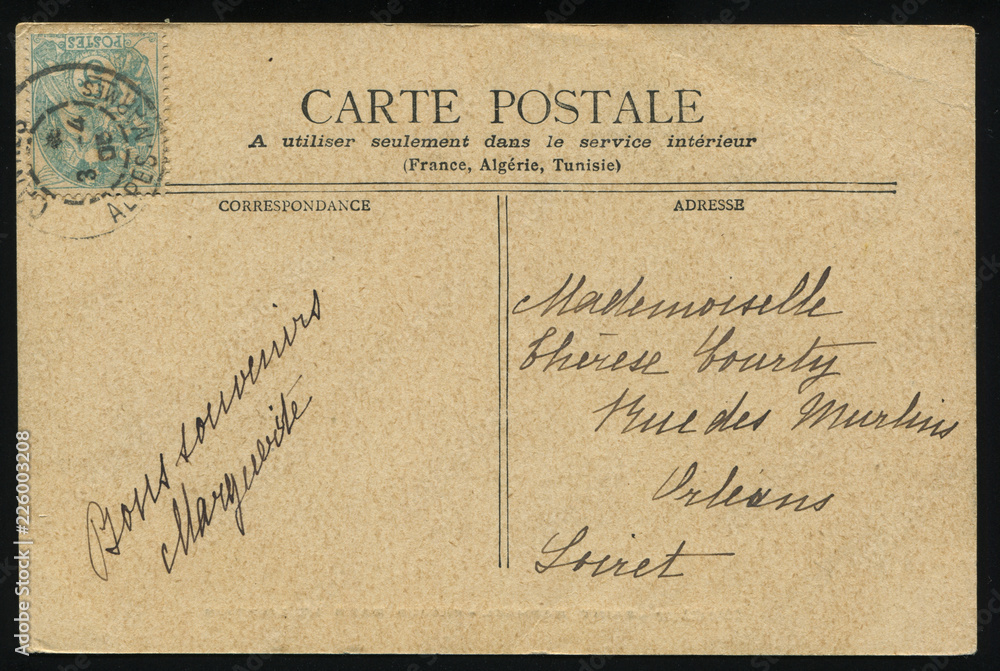 POSTES
ALPES-M
CARTE POSTALE
A utiliser seulement dans le service intérieur
(France, Algérie, Tunisie)
CORRESPONDANCE
Bons souvenirs
Marguerite
ADRESSE
Mademoiselle
Thérèse Courty
Rue des Murlins
Orléans
Loiret
Adobe Stock | #226003208